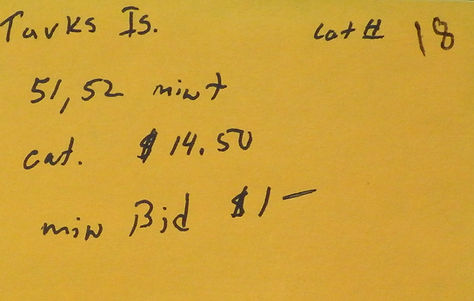 Turks Is. Lot # 18
51, 52 mint
cat. $14.50
min Bid $1-